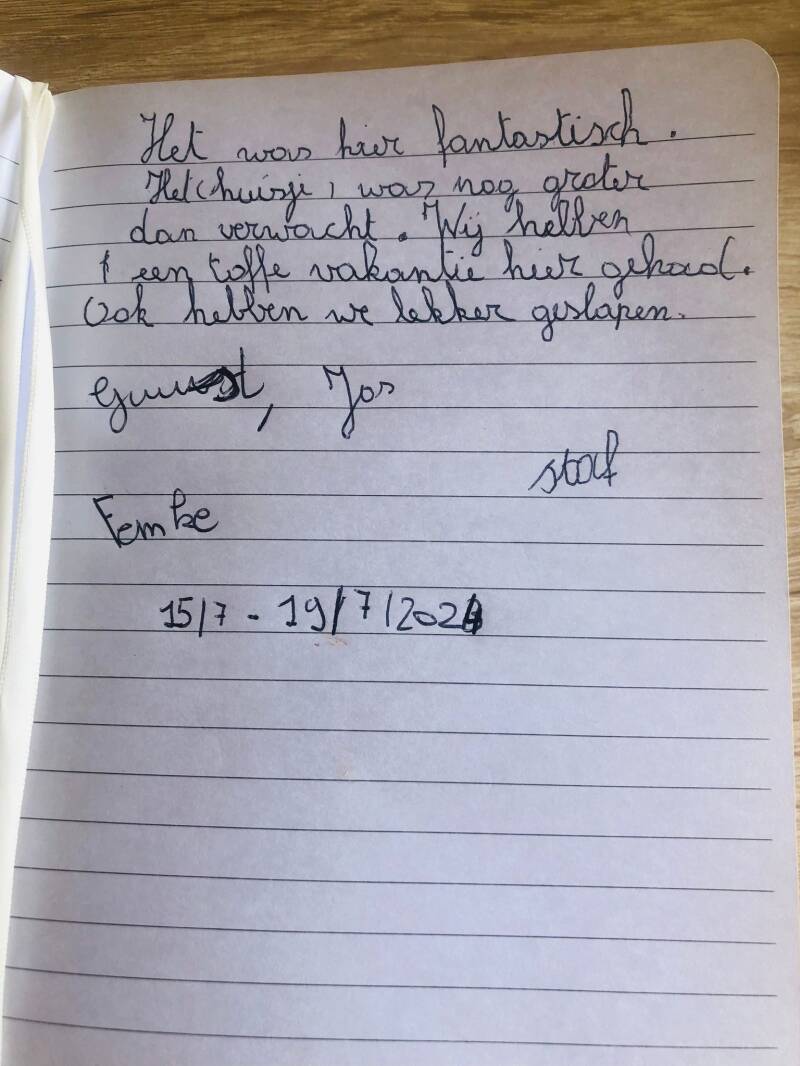 Het was hier fantastisch.
Het (huisje) was nog groter
dan verwacht. Wij hebben
een toffe vakantie hier gehad.
Ook hebben we lekker geslapen.
Guust, Jos
staf
Femke
15/7 - 19/7/2024